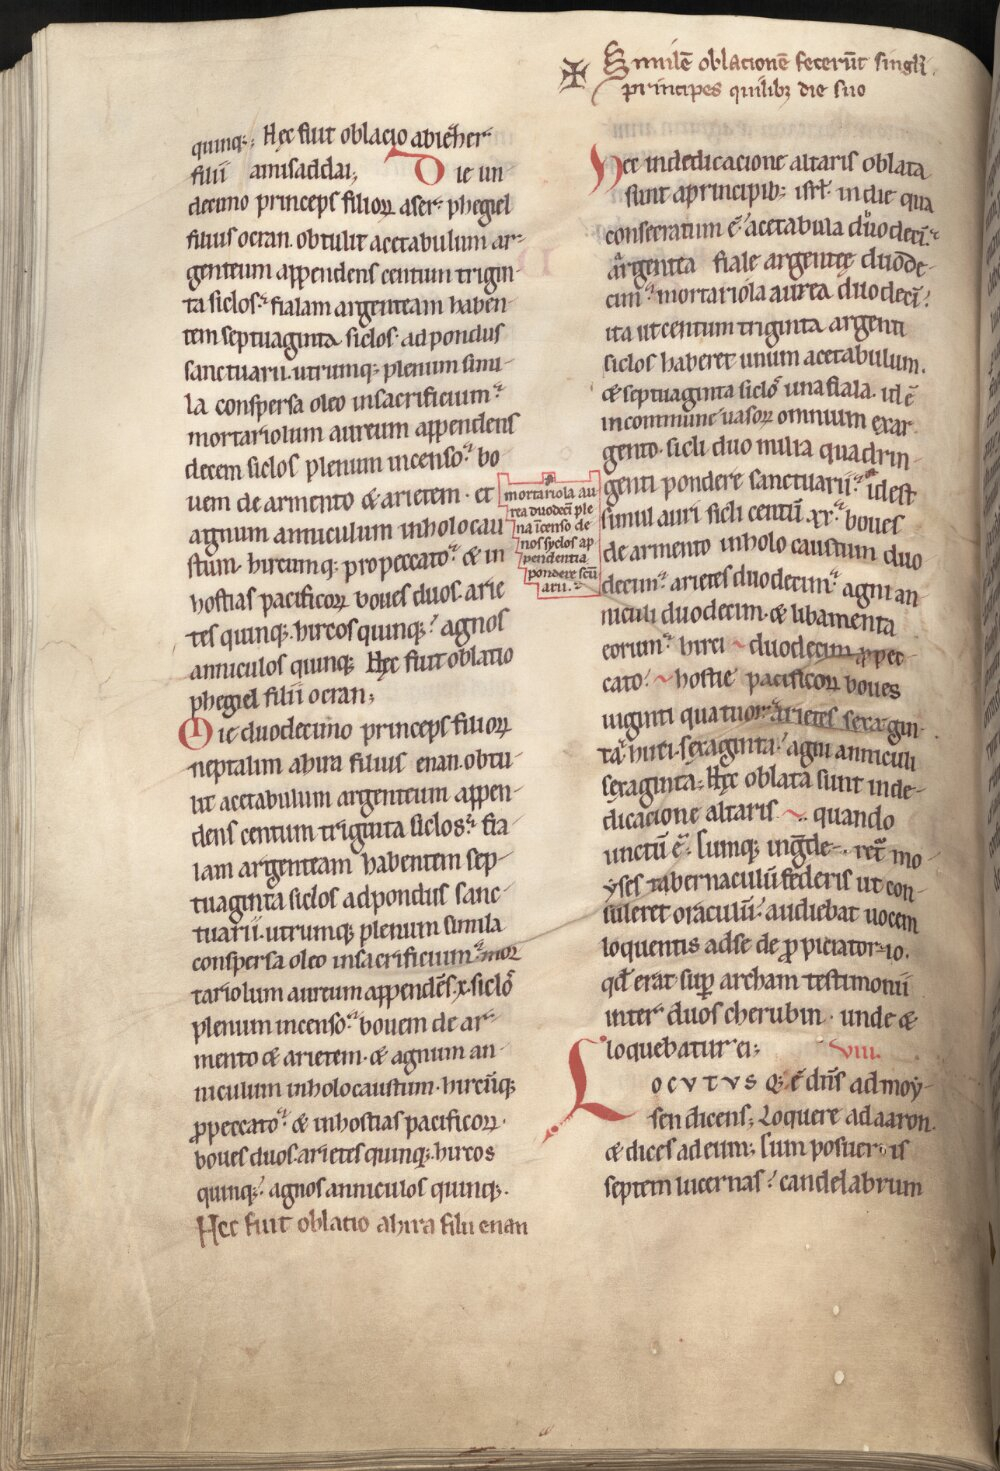 Similē oblacionē fecerūt singli
principes quilibꝫ die suo
quinqꝫ. Hęc fuit oblacio abiezer
filii amisaddai; Die un
decimo princeps filioꝝ aser. phegiel
filius ocran. obtulit acetabulum ar-
genteum appendens centum trigin-
ta siclos. fialam argenteam haben-
tem septuaginta siclos. ad pondus
sanctuarii. utrumqꝫ plenum simi-
la conspersa oleo in sacrificium.
mortariolum aureum appendens
decem siclos plenum incenso. bo
uem de armento & arietem. et
agnum anniculum in holocau
stum. hircumqꝫ pro peccato. & in
hostias pacificoꝝ boues duos. arie
tes quinqꝫ. hircos quinqꝫ. agnos
anniculos quinqꝫ Hęc fuit oblatio
phegiel filii ocran;
Die duodecimo princeps filioꝝ
neptalim ahira filius enan. obtu-
lit acetabulum argenteum appen-
dens centum triginta siclos. fia-
lam argenteam habentem sep-
tuaginta siclos ad pondus sanc-
tuarii. utrumqꝫ plenum simila
conspersa oleo in sacrificium. mor
tariolum aureum appendēs .x. siclos
plenum incenso. bouem de ar-
mento & arietem. & agnum an-
niculum in holocaustum. hircūqꝫ
ꝓ peccato. & in hostias pacificoꝝ.
boues duos. arietes quinqꝫ. hircos
quinqꝫ. agnos anniculos quinqꝫ.
Hec fuit oblatio ahira filii enan
mortariola au
rea duodeci ple
na īcenso de
nos syclos ap
pendentia
pondere scū
arii.
Hec in dedicacione altaris oblata
sunt a principibꝫ isrł. in die qua
consecratum ē. acetabula duodeci.
argentea fiale argenteę duode-
cim. mortariola aurea duodeci.
ita ut centum triginta argenti
siclos haberet unum acetabulum.
& septuaginta siclos una fiala. id ē
in commune uasoꝝ omnium ex ar
gento. sicli duo milia quadrin-
genti pondere sanctuarii. id est
simul auri sicli centū xx. boues
de armento in holocaustum duo
decim. arietes duodecim. agni an
niculi duodecim. & libamenta
eorum. hirci duodecim ꝓ pec
cato. hostie pacificoꝝ boues
uiginti quatuor. arietes sexagin-
ta. hirci. sexaginta. agni anniculi
sexaginta. Hęc oblata sunt in de-
dicacione altaris quando
unctū ē. Cumqꝫ ingrede-retꝛ mo
yses tabernaculū federis ut con-
suleret oraculū. audiebat uocem
loquentis ad se de ꝓpiciatorio.
qđ erat suꝑ archam testimonii
inter duos cherubin. unde &
loquebatur ei; VIII.
LOCVTVSQꝫ ē dn̄s ad moy-
sen dicens; Loquere ad aaron.
& dices ad eum; Cum posueris
septem lucernas. candelabrum